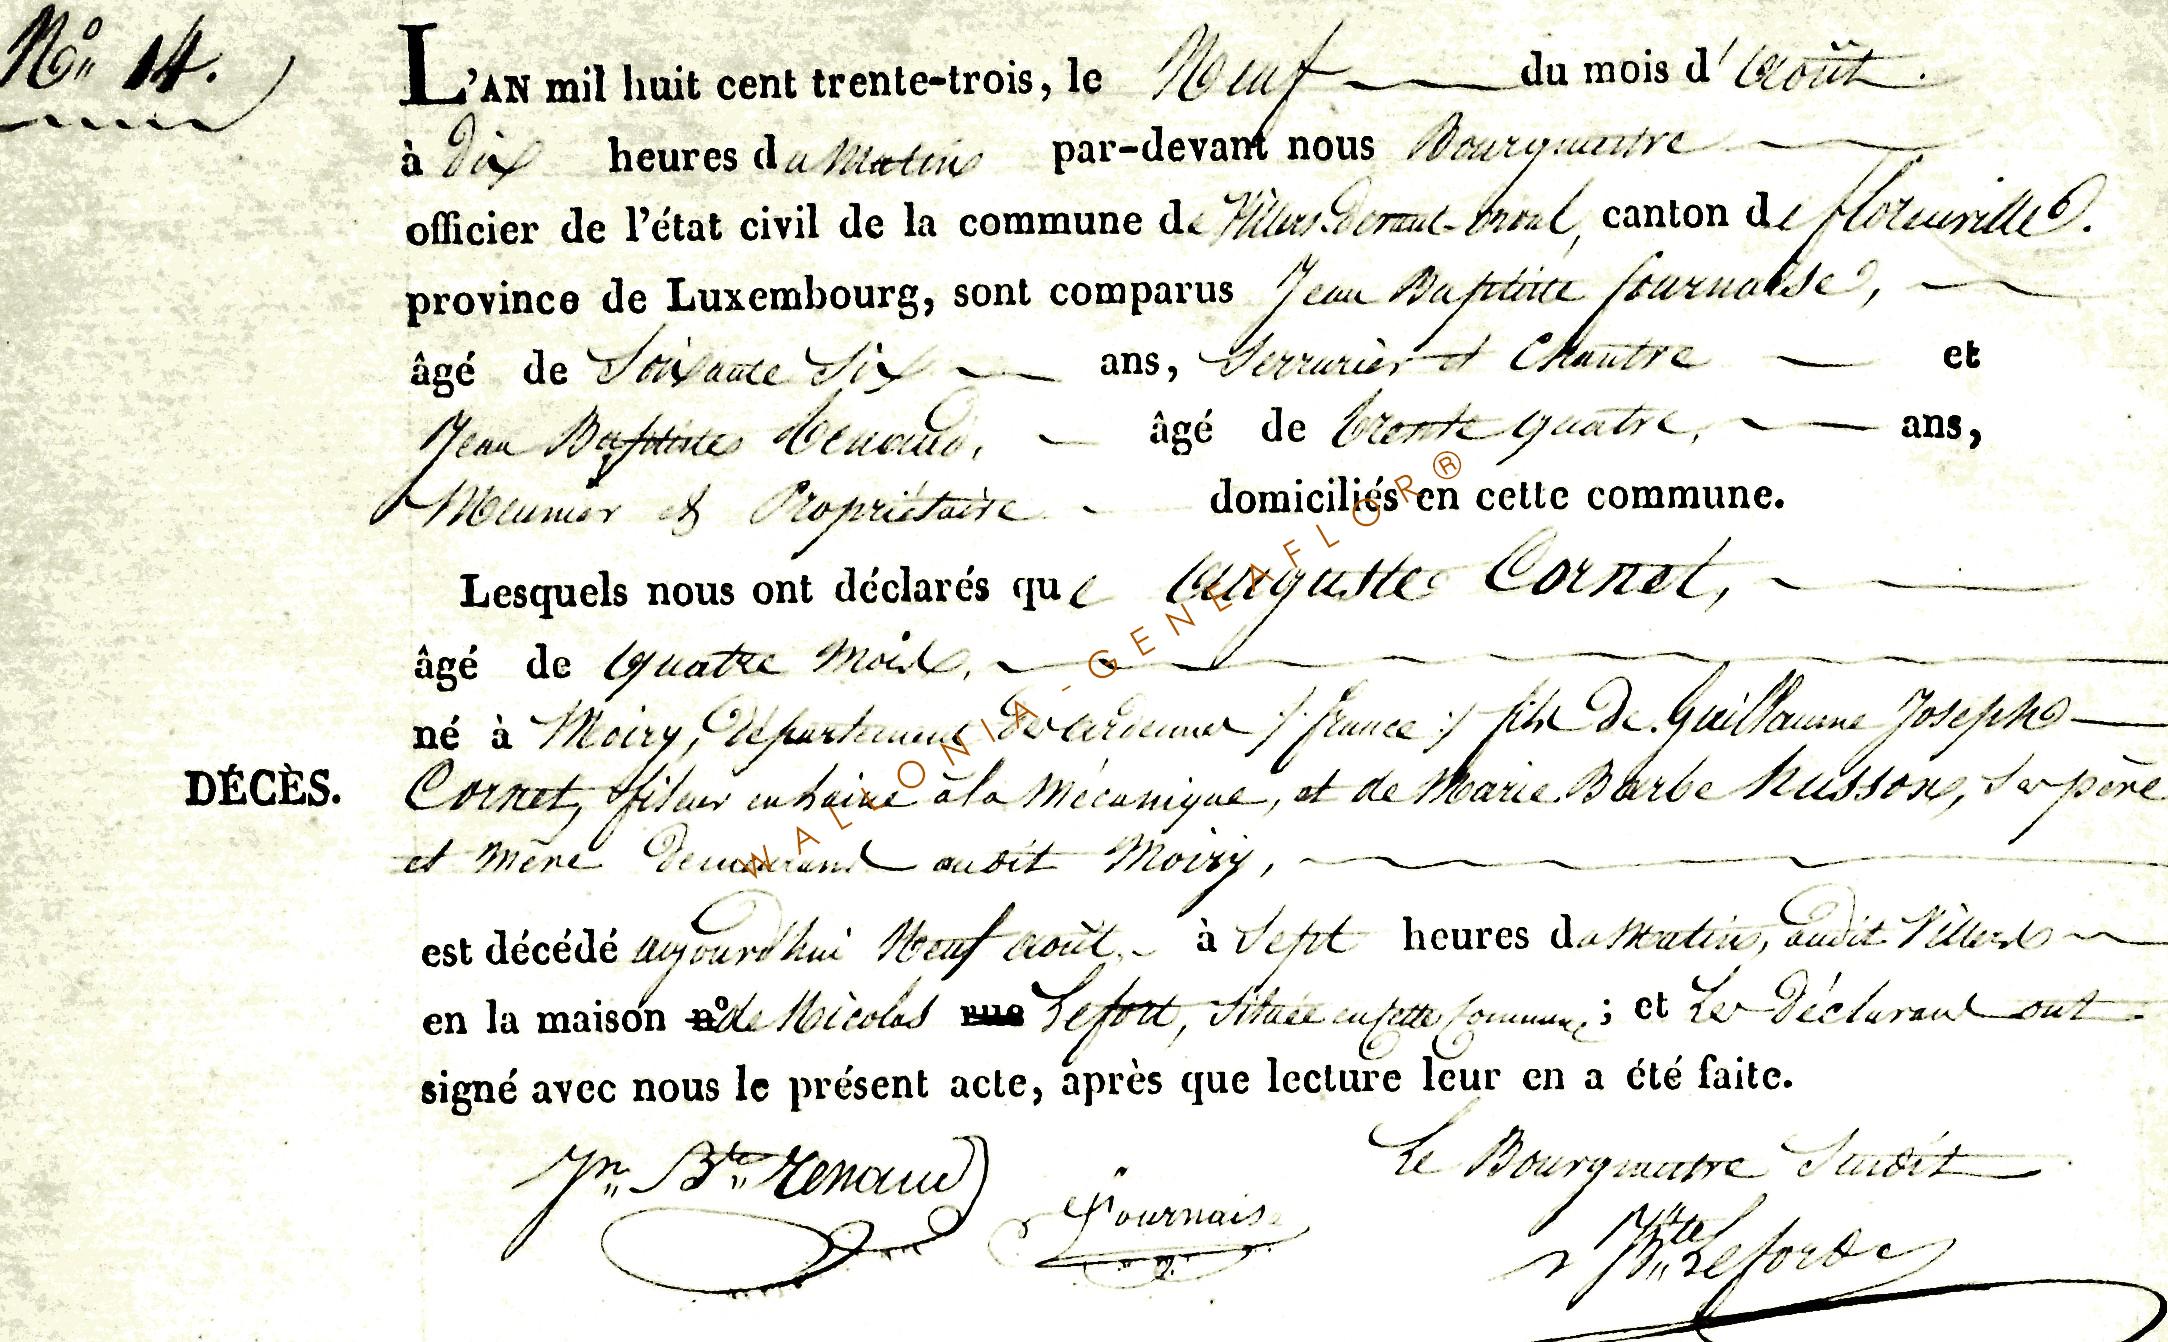 No 14.
L'AN mil huit cent trente-trois, le Neuf du mois d'Août.
à Dix heures du Matin par-devant nous Bourgmestre
officier de l'état civil de la commune de Villers-devant-orval, canton de florenville.
province de Luxembourg, sont comparus Jean Baptiste fournaise,
âgé de Soixante Six ans, Serrurier et Chantre et
Jean Baptiste Renaud, âgé de trente quatre, ans,
Meunier et Propriétaire domiciliés en cette commune.
Lesquels nous ont déclarés que Auguste Cornet,
âgé de quatre mois,
né à Moiry, département des ardennes /: france :/ fils de Guillaume Joseph
DÉCÈS.
Cornet, fileur en Laine à la Mécanique, et de Marie Barbe husson, ses père
et mère demeurant audit Moiry,
est décédé aujourd'hui Neuf août à Sept heures du Matin, audit Villers
en la maison n° de Nicolas rue Lefort, située en cette Commune ; et Les Déclarant ont
signé avec nous le présent acte, après que lecture leur en a été faite.
Jn Bte Renaud
fournaise
Le Bourgmestre Susdit
Lefort
WALLONIA-GENEAFLOR®